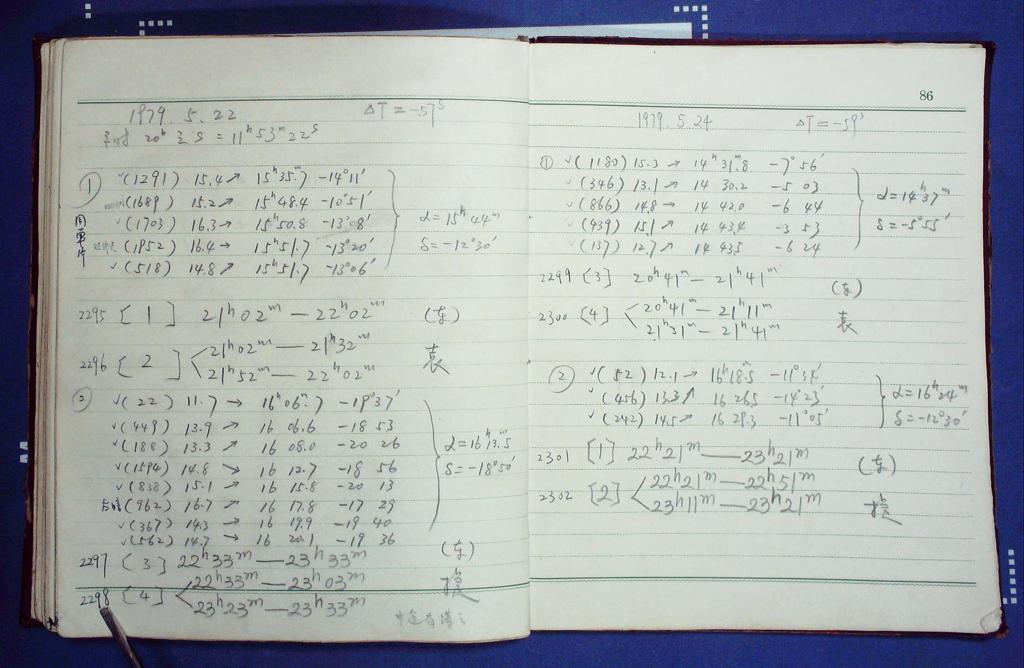 1979. 5. 22 ΔT = -57ˢ
20ʰ S = 11ʰ 53ᵐ 22ˢ
① ✓(1291) 15.4 ↗ 15ʰ35ᵐ.7 -14°11′
(1689) 15.2 ↗ 15ʰ48.4 -10°51′
✓(1703) 16.3 → 15ʰ50.8 -13°08′
α=15ʰ44ᵐ
(1952) 16.4 → 15ʰ51.7 -13°20′
δ=-12°30′
✓(518) 14.8 ↗ 15ʰ51.7 -13°06′
2295 [1] 21ʰ02ᵐ — 22ʰ02ᵐ (东)
2296 [2] 21ʰ02ᵐ — 21ʰ32ᵐ 袁
21ʰ52ᵐ — 22ʰ02ᵐ
② ✓(22) 11.7 → 16ʰ06ᵐ.7 -19°37′
✓(449) 13.9 → 16 06.6 -18 53
✓(188) 13.3 → 16 08.0 -20 26
α=16ʰ13ᵐ.5
✓(1594) 14.8 → 16 12.7 -18 56
δ=-18°50′
✓(838) 15.1 → 16 15.8 -20 13
(962) 16.7 → 16 17.8 -17 29
✓(367) 14.3 → 16 19.9 -19 40
✓(562) 14.7 → 16 20.1 -19 36
2297 [3] 22ʰ33ᵐ — 23ʰ33ᵐ (东)
2298 [4] 22ʰ33ᵐ — 23ʰ03ᵐ
23ʰ23ᵐ — 23ʰ33ᵐ
86
1979. 5. 24 ΔT = -59ˢ
① ✓(1180) 15.3 ↗ 14ʰ31ᵐ.8 -7°56′
✓(346) 13.1 ↗ 14 30.2 -5 03
α=14ʰ37ᵐ
✓(866) 14.8 → 14 42.0 -6 44
δ=-5°55′
✓(439) 15.1 ↗ 14 43.4 -3 53
✓(137) 12.7 ↗ 14 43.5 -6 24
2299 [3] 20ʰ41ᵐ — 21ʰ41ᵐ (东)
2300 [4] 20ʰ41ᵐ — 21ʰ11ᵐ 袁
21ʰ31ᵐ — 21ʰ41ᵐ
② ✓(52) 12.1 → 16ʰ18ᵐ.5 -11°34′
✓(456) 13.3 ↗ 16 26.5 -14°23′
α=16ʰ24ᵐ
✓(242) 14.5 ↗ 16 29.3 -11°05′
δ=-12°30′
2301 [1] 22ʰ21ᵐ — 23ʰ21ᵐ (东)
2302 [2] 22ʰ21ᵐ — 22ʰ51ᵐ
23ʰ11ᵐ — 23ʰ21ᵐ